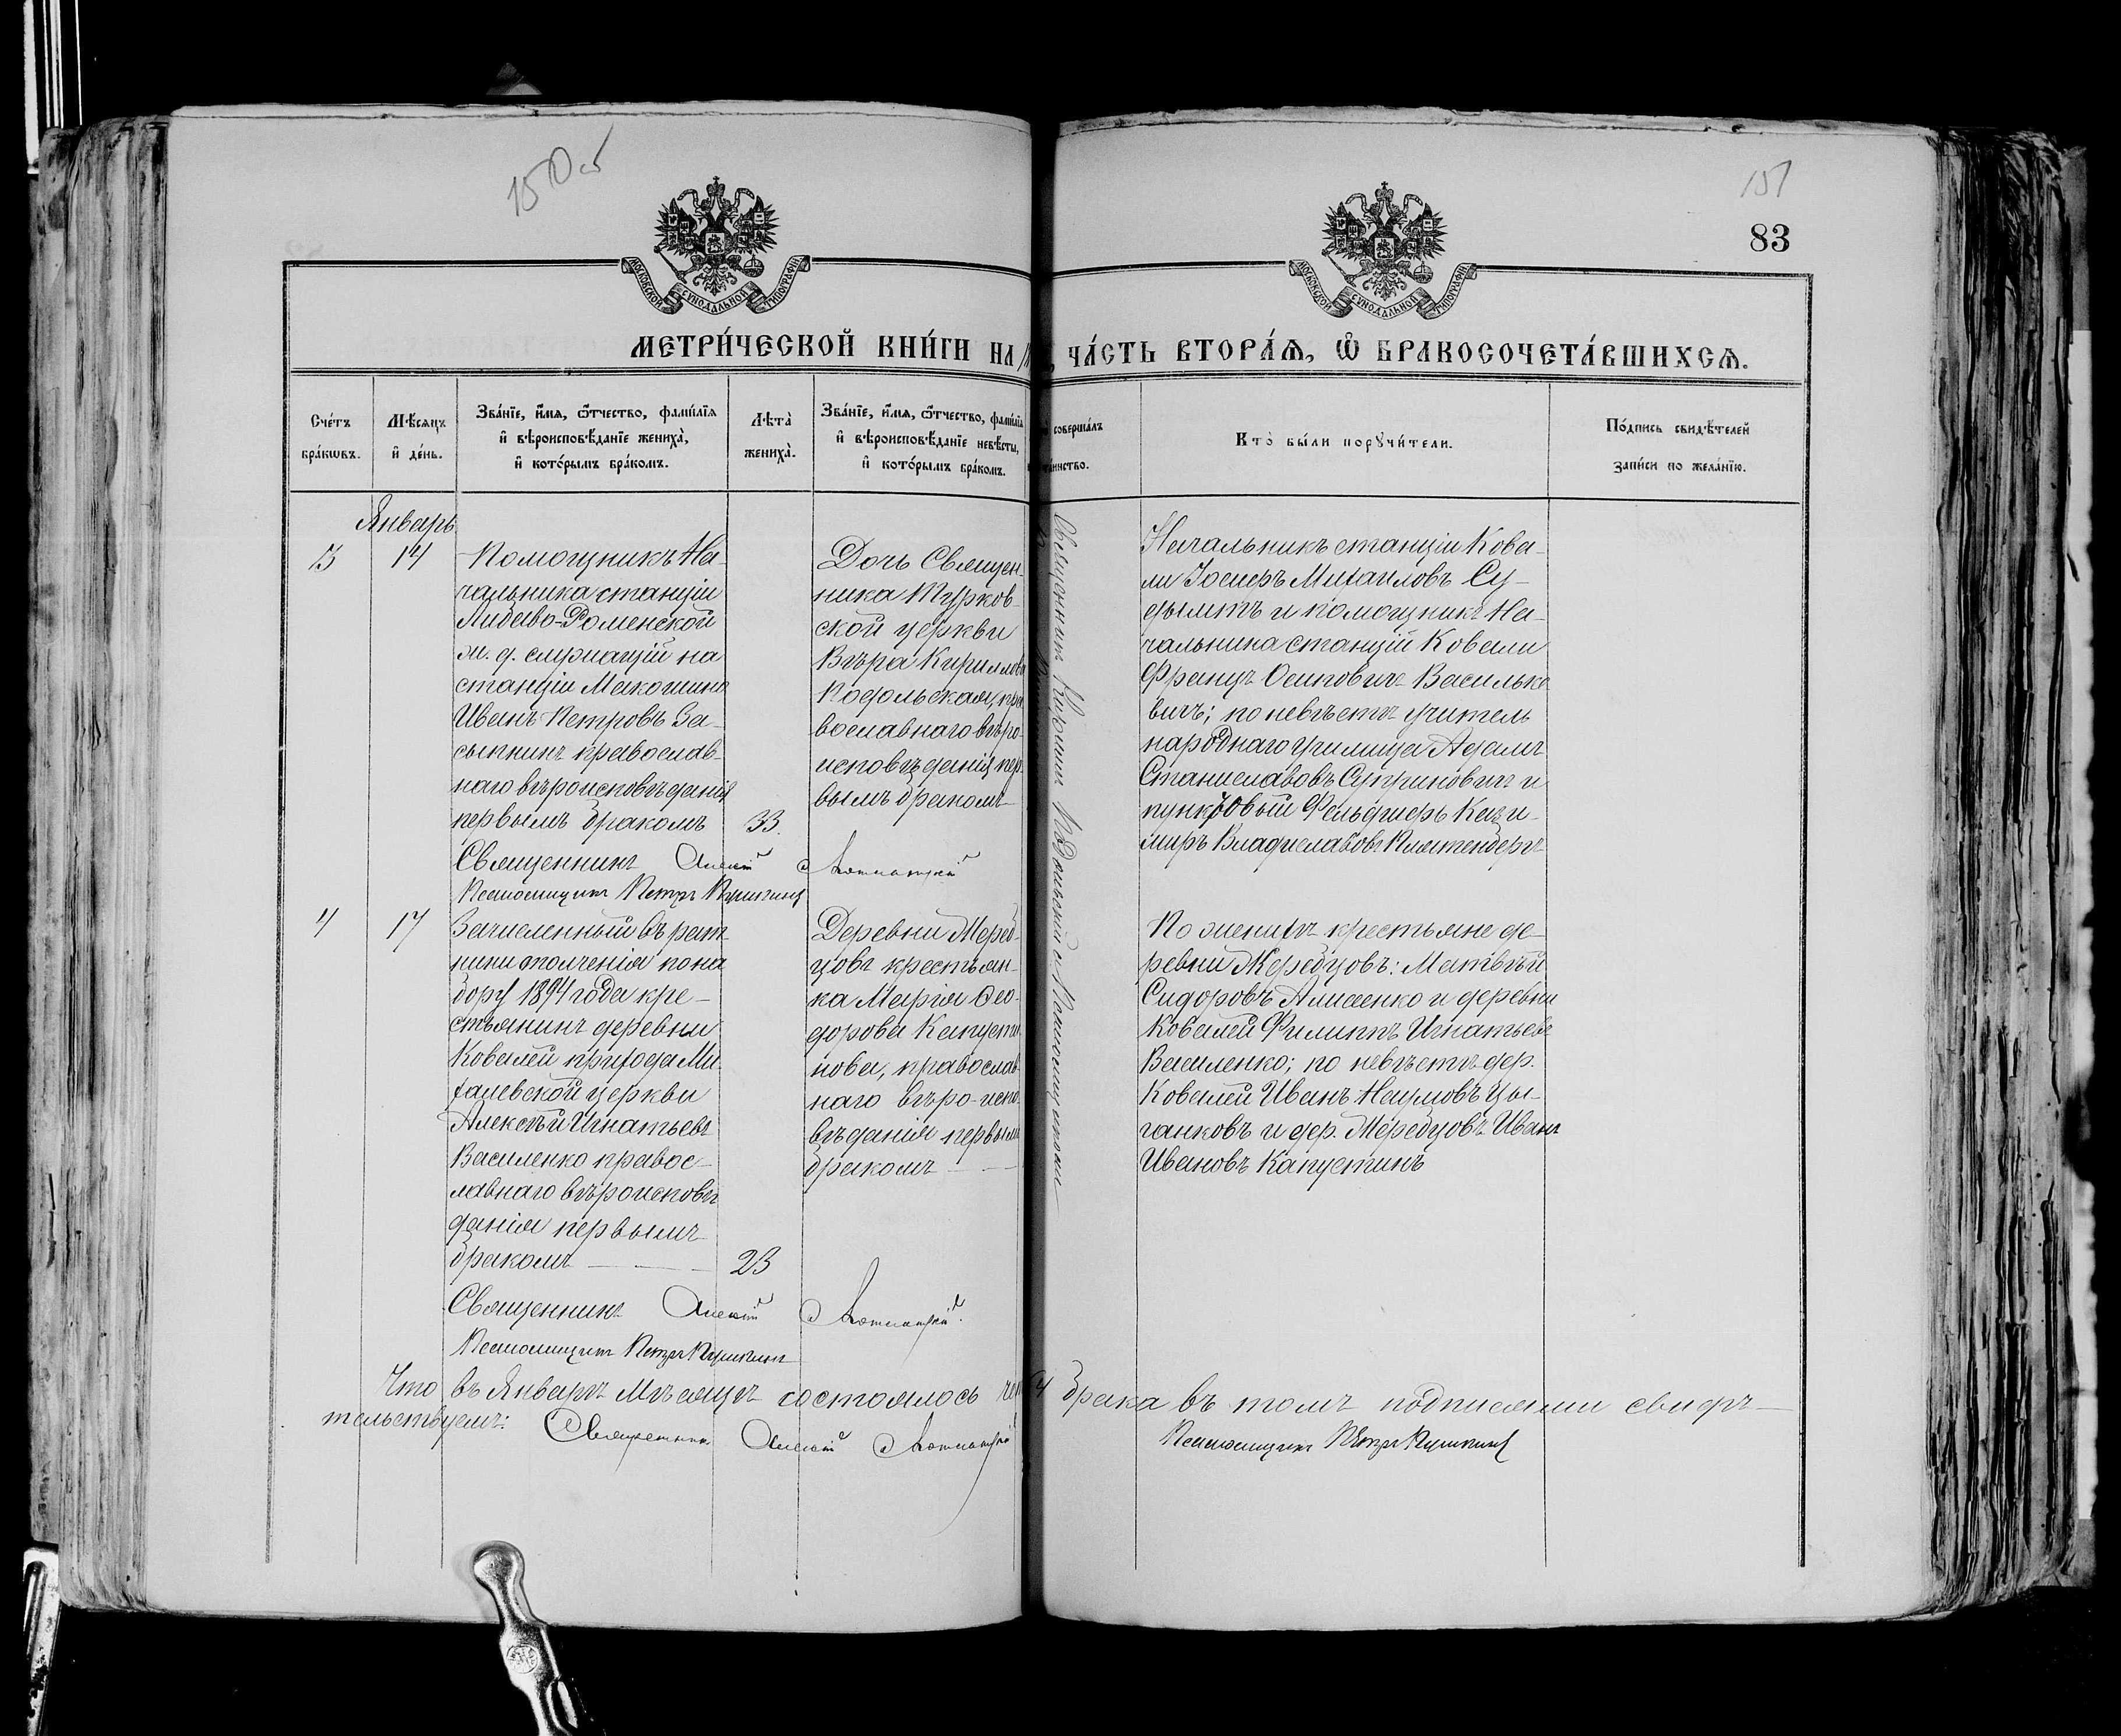 150 об
151
83
МОСКОВСКОЙ СУНОДАЛЬНОЙ ТИПОГРАФІИ
МОСКОВСКОЙ СУНОДАЛЬНОЙ ТИПОГРАФІИ
МЕТРИ́ЧЕСКОЙ КНИ́ГИ НА
ЧА́СТЬ ВТОРА́Ѧ, Ѽ БРАКОСОЧЕТА́ВШИХСѦ.
Сче́тъ
бра́кѡвъ.
Мѣ́сѧцъ
и҆ де́нь.
Зва́нїе, и҆́мѧ, ѻ҆́тчество, фамѝлїѧ
и҆ вѣроисповѣ́данїе жениха̀,
и҆ кото́рымъ бра́комъ.
Лѣ́та̀
жениха̀.
Зва́нїе, и҆́мѧ, ѻ҆́тчество, фамѝлїѧ
и҆ вѣроисповѣ́данїе невѣ́сты,
и҆ кото́рымъ бра́комъ.
соверша́лъ
Кто̀ бы́ли порꙋчи́тели.
По́дпись свидѣ́телей
запи́си по жела́нїю.
Январь
3
14
Помощникъ На-
чальника станціи
Либаво-Роменской
ж. д. служащій на
станціи Макошино
Иванъ Петровъ За-
сыпкинъ православ-
наго вѣроисповѣданія
первымъ бракомъ
33.
Дочь Священ-
ника Турков-
ской церкви
Вѣра Кириллова
Подольская, пра-
вославнаго вѣро-
исповѣданія пер-
вымъ бракомъ
Начальникъ станціи Кова-
ли Іосифъ Михаиловъ Су-
дымтъ и помощникъ На-
чальника станціи Ковали
Францъ Осиповичъ Василько-
вичъ; по невѣстѣ учитель
народнаго училища Адамъ
Станиславовъ Супринович и
пунктовый Фельдшеръ Кази-
міръ Владиславовъ
Священникъ Алексій
Псаломщикъ Петръ
4
17
Зачисленный въ рат-
ники ополченія по на-
бору 1894 года кре-
стьянинъ деревни
Ковалей прихода Ми-
халевской церкви
Алексѣй Игнатьевъ
Василенко правос-
лавнаго вѣроисповѣ-
данія первымъ
бракомъ
23
Деревни Жереб-
цовъ крестьян-
ка Марія Ѳео-
дорова Капусти-
нова, православ-
наго вѣро-испо-
вѣданія первымъ
бракомъ
По женихѣ крестьяне де-
ревни Жеребцовъ: Матвѣй
Сидоровъ Алисеенко и деревни
Ковалей Филиппъ Игнатьевъ
Василенко; по невѣстѣ дер.
Ковалей Иванъ Наумовъ Цы-
ганковъ и дер. Жеребцовъ Иванъ
Ивановъ Капустинъ
Священникъ Алексій
Псаломщикъ Петръ
Что въ Январѣ мѣсяцѣ состоялось 4 брака въ томъ подписями свидѣ-
тельствуемъ: Священникъ Алексій
Псаломщикъ Петръ